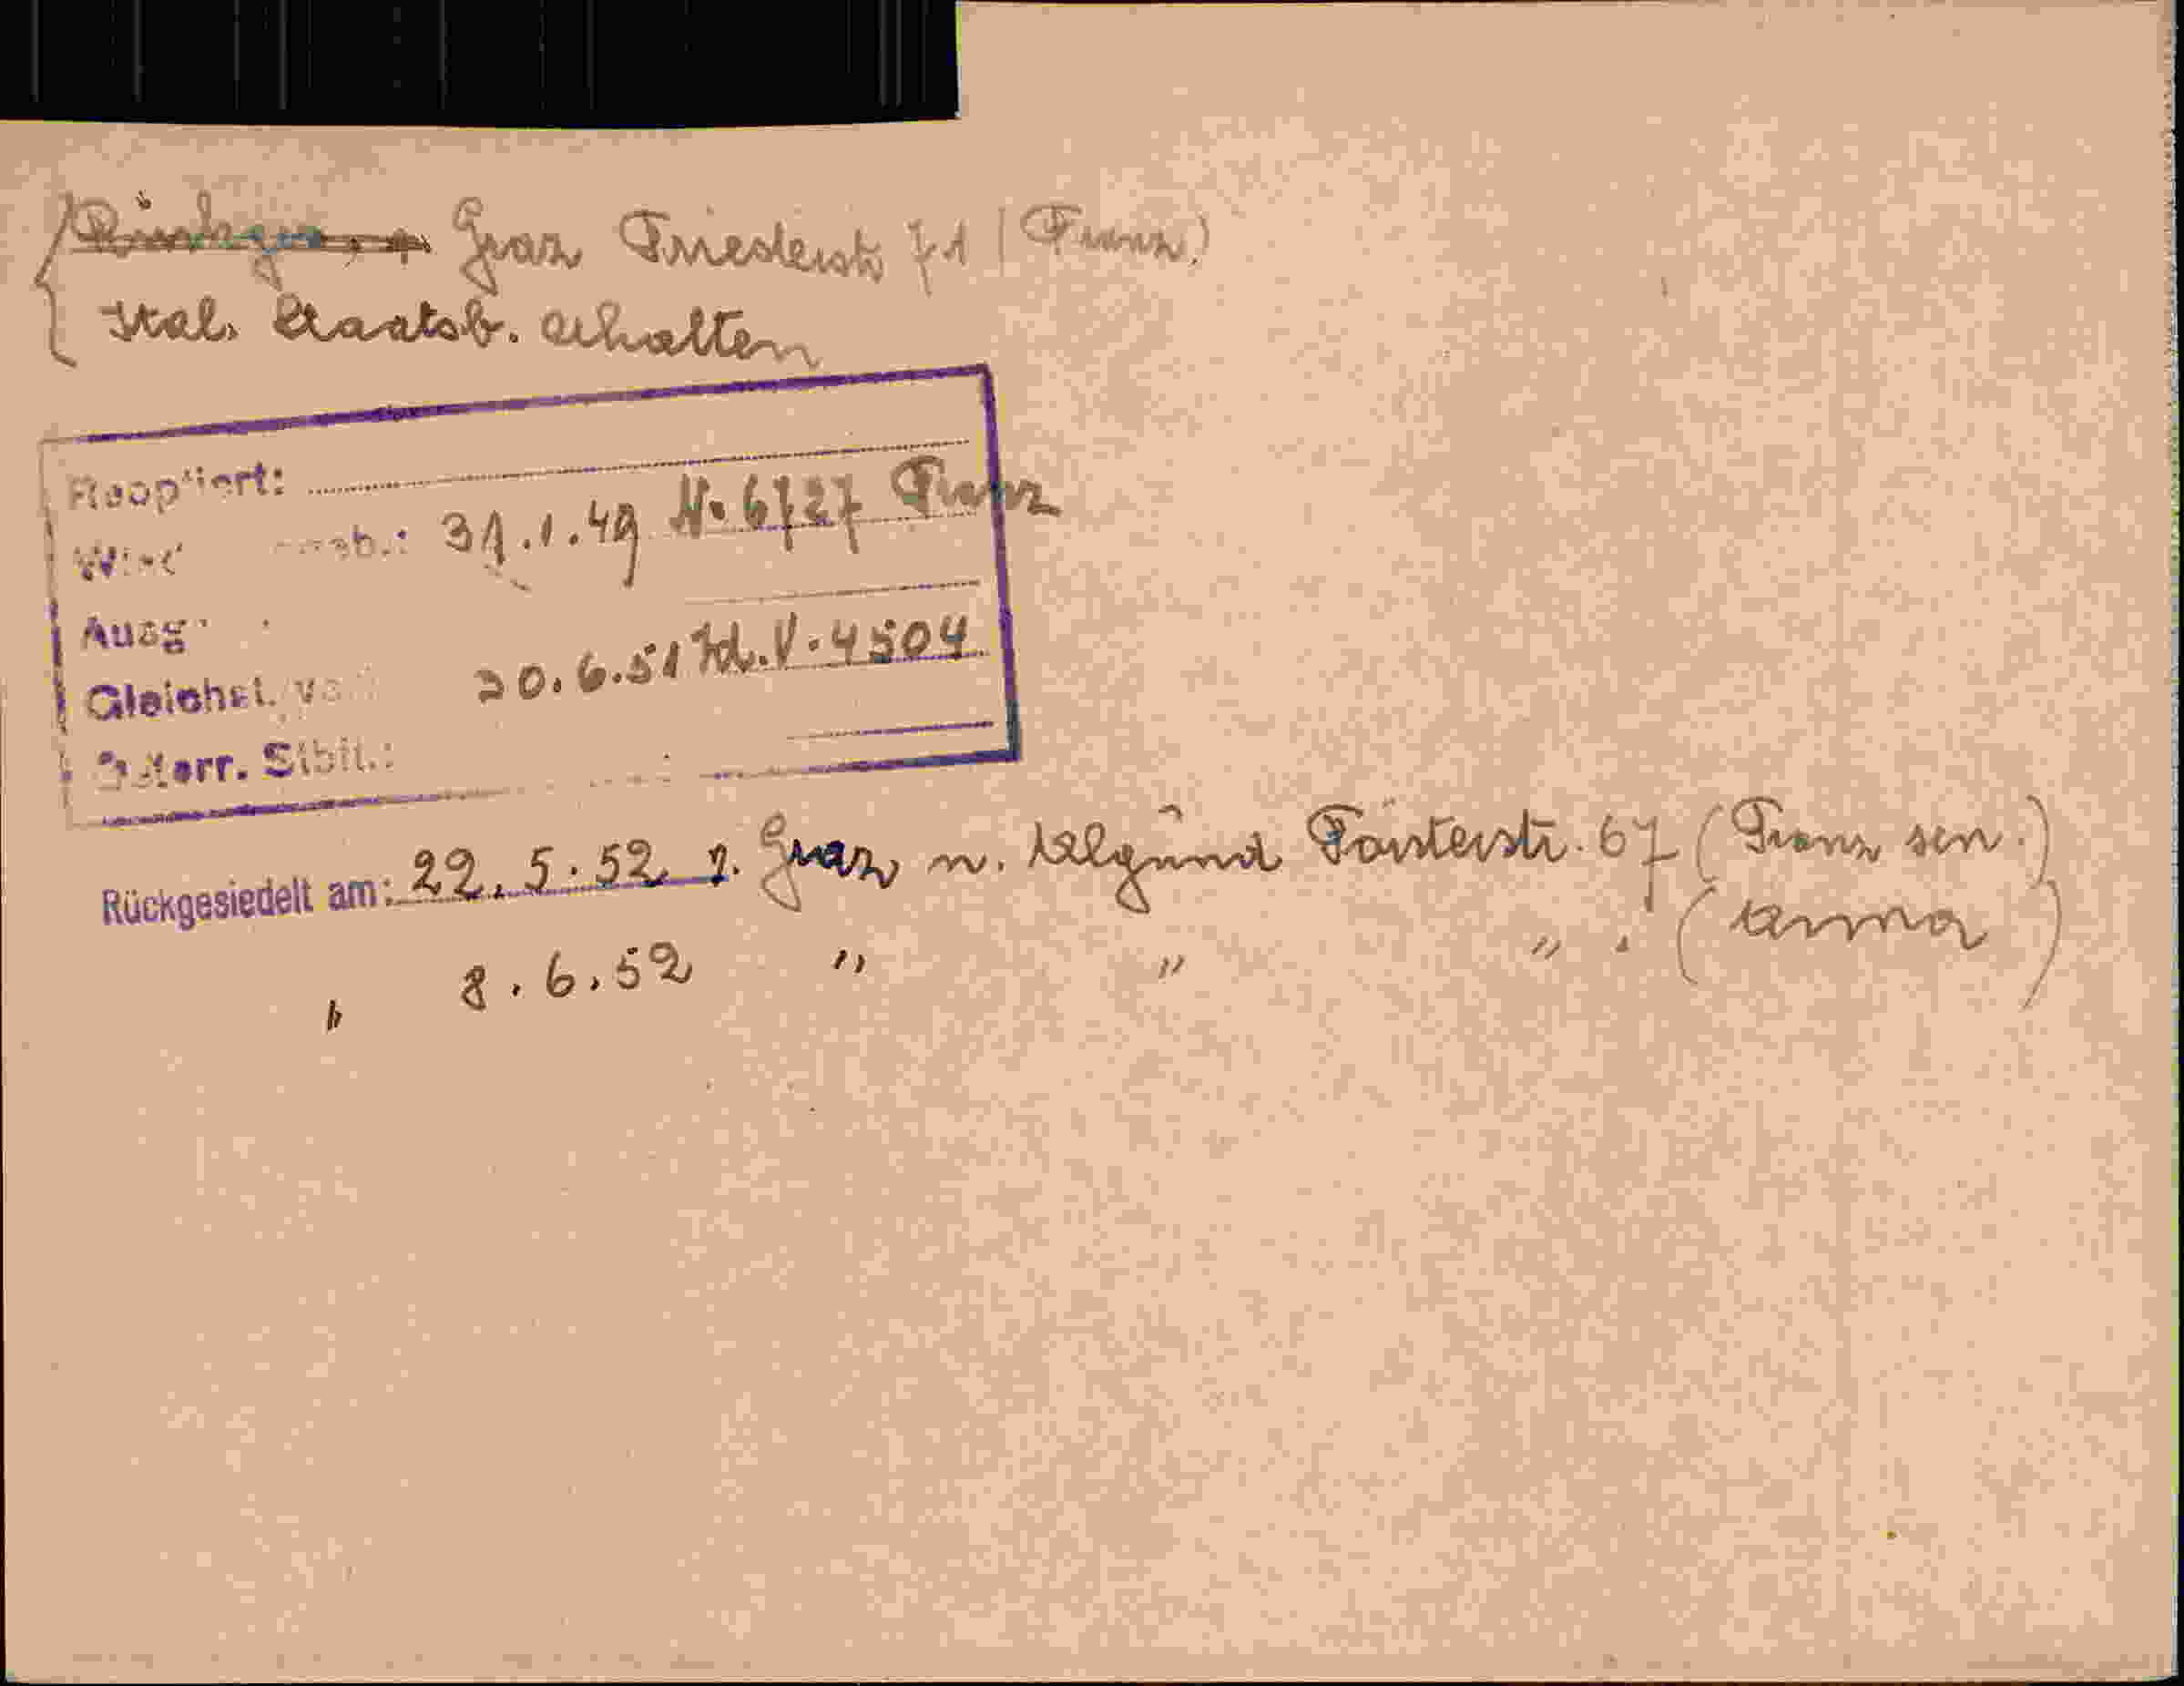 Graz Triesterstr 71 (Franz)
Ital. Staatsb. erhalten
Reoptiert:
31.1.49 N. 6727 Franz
Ausg
Gleichst. 20.6.51 V. 4504
Österr. Stbit.:
Rückgesiedelt am: 22. 5. 52 v. Graz n. Algund Forsterstr. 67 (Franz sen.)
" 8. 6. 52 " " " . (Anna)